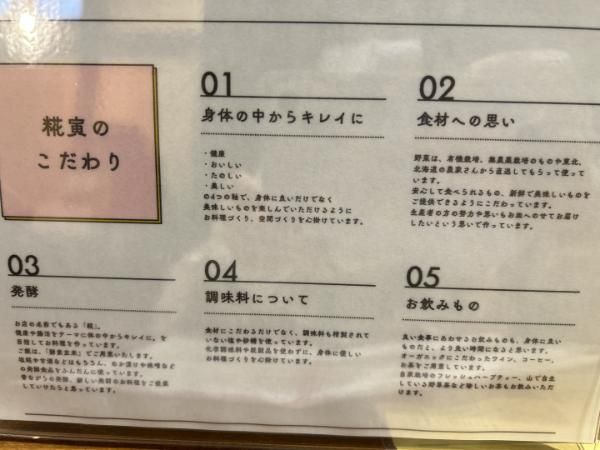 糀寅の
こだわり
01
身体の中からキレイに
・健康
・おいしい
・たのしい
・美しい
の4つの軸で、身体に良いだけでなく
美味しいものを楽しんでいただけるように
お料理づくり、空間づくりを心掛けています。
02
食材への思い
野菜は、有機栽培、無農薬栽培のものや東北、
北海道の農家さんから直送してもらって使って
います。
安心して食べられるもの、新鮮で美味しいものを
ご提供できるようにこだわっています。
生産者の方の努力や思いもお皿へのせてお届け
したいという思いで作っています。
03
発酵
お店の名前でもある「糀」。
健康や腸活をテーマに体の中からキレイに、を
目指してお料理を作っています。
ご飯は、「酵素玄米」でご用意いたします。
塩糀や甘酒などはもちろん、ぬか漬けや味噌など
の発酵食品をふんだんに使っています。
昔ながらの発酵、新しい発酵のお料理をご提案
していけたらと思っています。
04
調味料について
食材にこだわるだけでなく、調味料も精製されて
いない塩や砂糖を使っています。
化学調味料や既製品を使わずに、身体に優しい
お料理づくりを心掛けています。
05
お飲みもの
良い食事にあわせるお飲みものも、身体に良い
ものだと、より良い時間になると思います。
オーガニックにこだわったワイン、コーヒー、
お茶をご用意しています。
自家栽培のフレッシュハーブティー、山で自生
している野草茶など珍しいお茶もお飲みいただ
けます。